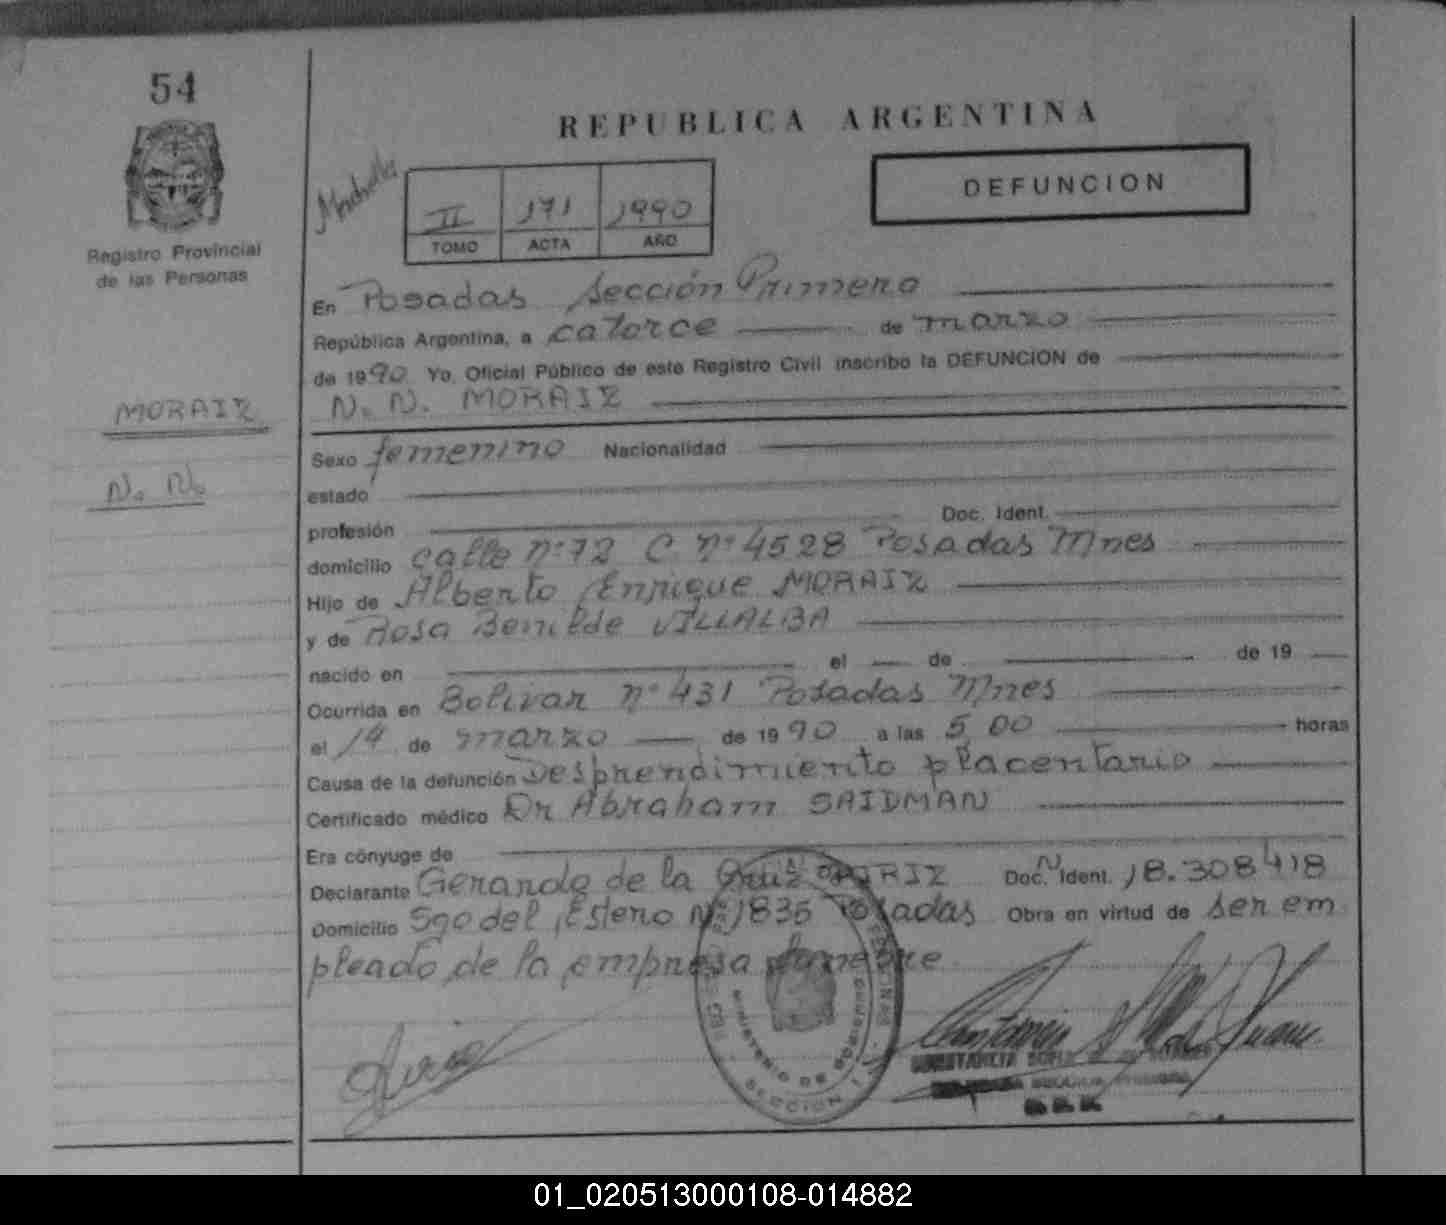 54
REPUBLICA ARGENTINA
DEFUNCION
II 171 1990
TOMO ACTA AÑO
Registro Provincial
de las Personas
En Posadas Sección Primera
República Argentina, a catorce de marzo
de 1990 Yo, Oficial Público de este Registro Civil inscribo la DEFUNCION de
N. N. MORAIZ
MORAIZ
N. N.
Sexo femenino Nacionalidad
estado
profesión Doc. Ident.
domicilio calle nº 72 C nº 4528 Posadas Mnes
Hijo de Alberto Enrique MORAIZ
y de Rosa Benilde VILLALBA
nacido en el de de 19
Ocurrida en Bolivar nº 431 Posadas Mnes
el 14 de marzo de 1990 a las 5,00 horas
Causa de la defunción Desprendimiento placentario
Certificado médico Dr Abraham SAIDMAN
Era cónyuge de
Declarante Gerardo de la Cruz Doc. N Ident. 18.308418
Domicilio Sgo del Estero Nº 1835 Posadas Obra en virtud de ser em
pleado de la empresa funebre
MINISTERIO DE GOBIERNO
SECCION 1
01_020513000108-014882